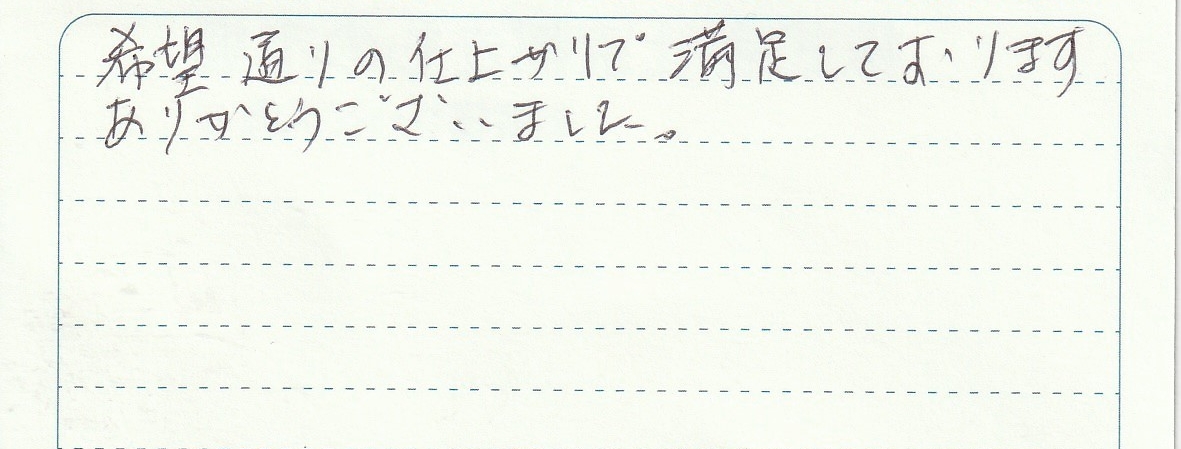 希望通りの仕上がりで満足しております
ありがとうございました。